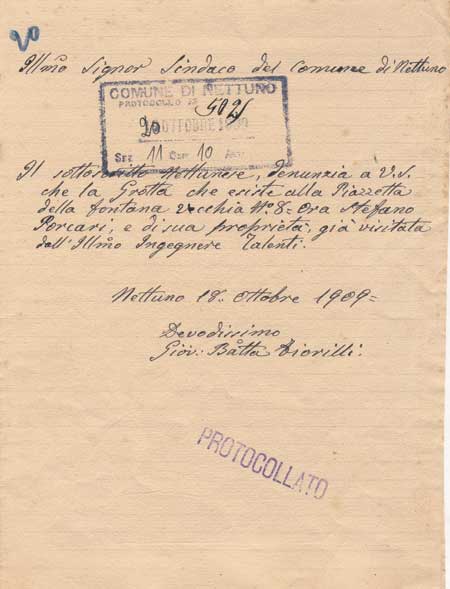 Illmo Signor Sindaco del Comune di Nettuno
COMUNE DI NETTUNO
PROTOCOLLO N.
20 OTTOBRE 1909
11 10
Il sottoscritto Nettunese, denunzia a V.S.
che la Grotta che esiste alla Piazzetta
della fontana vecchia N.º 8= ora Stefano
Porcari, e di sua proprietà, già visitata
dall'Illmo Ingegnere Talenti.
Nettuno 18. ottobre 1909=
Devodissimo
Giov. Batta Fiorilli.
PROTOCOLLATO